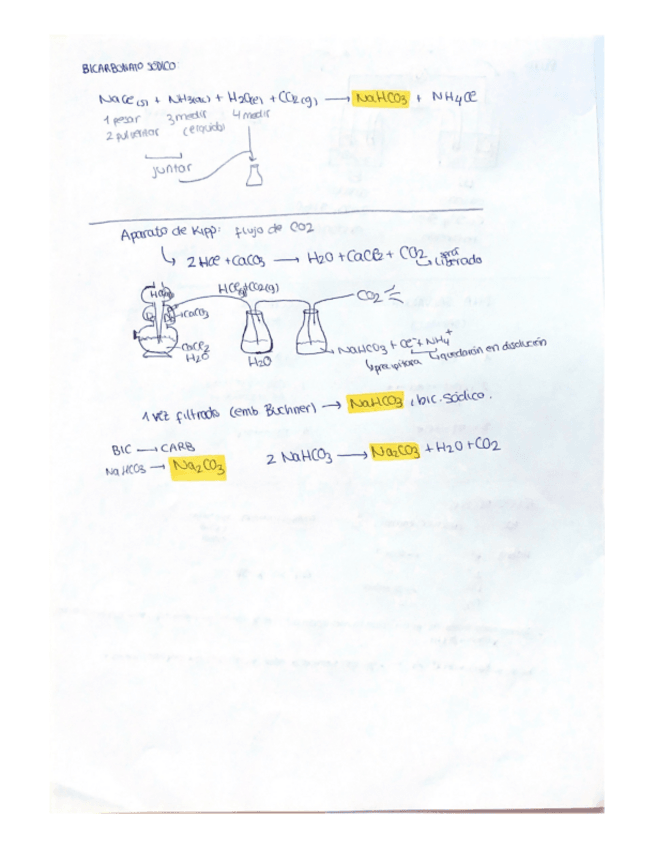 BICARBONATO SÓDICO:
NaCl(s) + NH3(ac) + H2O(l) + CO2(g) → NaHCO3 + NH4Cl
1 pesar 3 medir 4 medir
2 pulverizar (líquido)
juntar
Aparato de Kipp: flujo de CO2
↳ 2 HCl + CaCO3 → H2O + CaCl2 + CO2 será liberado
HCl(g)+CO2(g)
HCl
CO2
CaCO3
CaCl2
H2O
H2O
NaHCO3 + Cl- + NH4+
↳ precipitara
quedarán en disolución
1 vez filtrado (emb Buchner) → NaHCO3, bic. sódico.
BIC → CARB
NaHCO3 → Na2CO3
2 NaHCO3 → Na2CO3 + H2O + CO2